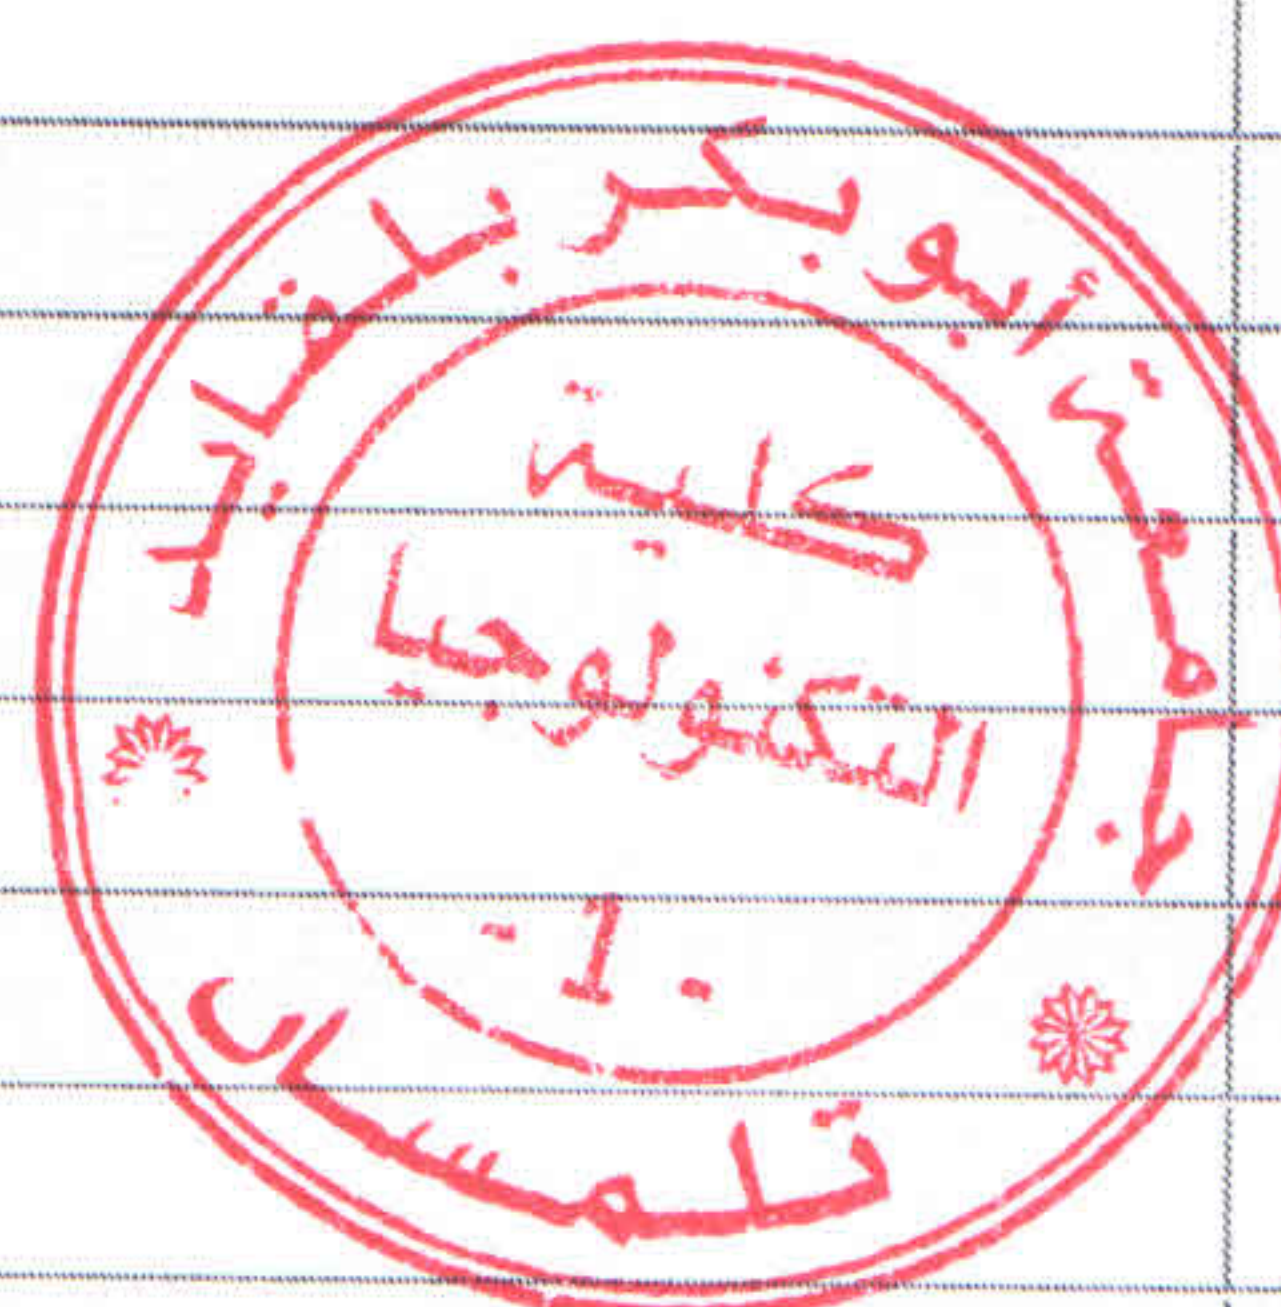 جامعة أبو بكر بلقايد
كلية
التكنولوجيا
- 1 -
تلمسان